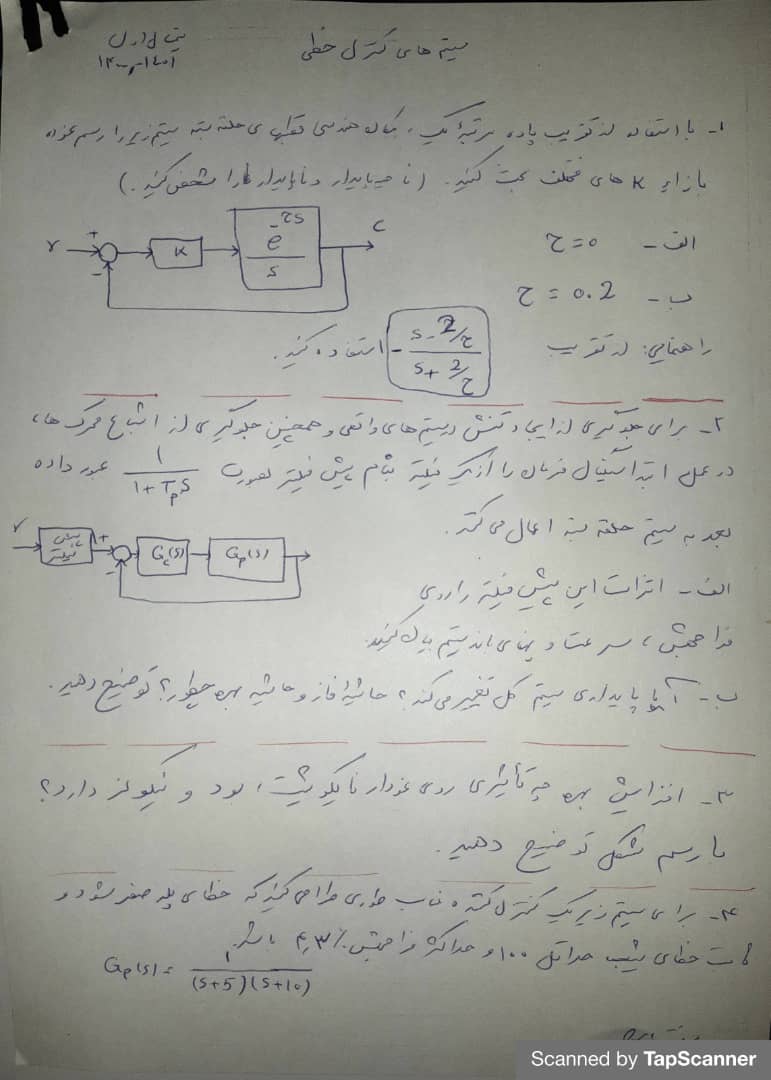 سیستم های کنترل خطی
۱- با استفاده از تقریب پاده مرتبهٔ یک، مکان هندسی قطبهای حلقه بسته سیستم زیر را رسم نموده
بازاء K های مختلف بحث کنید. (ناحیه پایدار و ناپایدار را مشخص کنید.)
r + - K e^{-τs} / s c
الف - τ = 0
ب - τ = 0.2
راهنمایی: از تقریب - (s - 2/τ) / (s + 2/τ) استفاده کنید.
۲- برای جلوگیری از ایجاد تنش در سیستم های واقعی و همچنین جلوگیری از اشباع محرک ها،
در عمل ابتدا سیگنال فرمان را از یک فیلتر بنام پیش فیلتر بصورت 1 / (1 + T_p s) عبور داده
بعد به سیستم حلقه بسته اعمال می کنند.
r پیش فیلتر + - Gc(s) Gp(s)
الف - اثرات این پیش فیلتر را روی
فراجهش، سرعت و پهنای باند سیستم بیان کنید.
ب - آیا پایداری سیستم کل تغییر می کند؟ حاشیهٔ فاز و حاشیه بهره چطور؟ توضیح دهید.
۳- افزایش بهره چه تأثیری روی نمودار نایکوئیست، بود و نیکولز دارد؟
با رسم شکل توضیح دهید.
۴- برای سیستم زیر یک کنترل کننده مناسب طوری طراحی کنید که خطای پله صفر شود و
ثابت خطای شیب حداقل ۱۰۰ و حداکثر فراجهش ٪۴٫۳ باشد.
Gp(s) = 1 / (s+5)(s+10)
Scanned by TapScanner